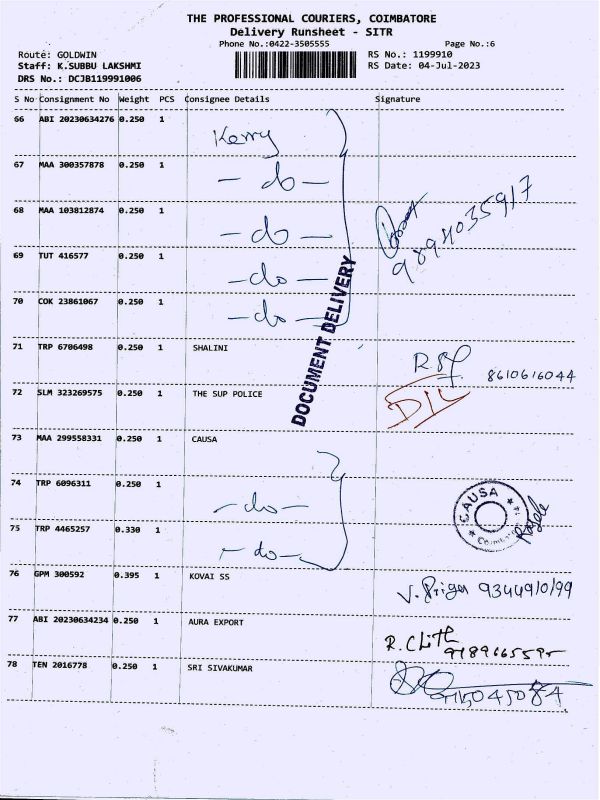 THE PROFESSIONAL COURIERS, COIMBATORE
Delivery Runsheet - SITR
Phone No.:0422-3505555 Page No.:6
Route: GOLDWIN RS No.: 1199910
Staff: K.SUBBU LAKSHMI RS Date: 04-Jul-2023
DRS No.: DCJB119991006
S No Consignment No Weight PCS Consignee Details Signature
66 ABI 20230634276 0.250 1 Kerry
67 MAA 300357878 0.250 1 - do -
68 MAA 103812874 0.250 1 - do -
9894035917
69 TUT 416577 0.250 1 - do -
70 COK 23861067 0.250 1 - do -
DOCUMENT DELIVERY
71 TRP 6706498 0.250 1 SHALINI 8610616044
72 SLM 323269575 0.250 1 THE SUP POLICE D/L
73 MAA 299558331 0.250 1 CAUSA
74 TRP 6096311 0.250 1 - do -
CAUSA
75 TRP 4465257 0.330 1 - do -
76 GPM 300592 0.395 1 KOVAI SS V. Priya 9344910199
77 ABI 20230634234 0.250 1 AURA EXPORT
78 TEN 2016778 0.250 1 SRI SIVAKUMAR